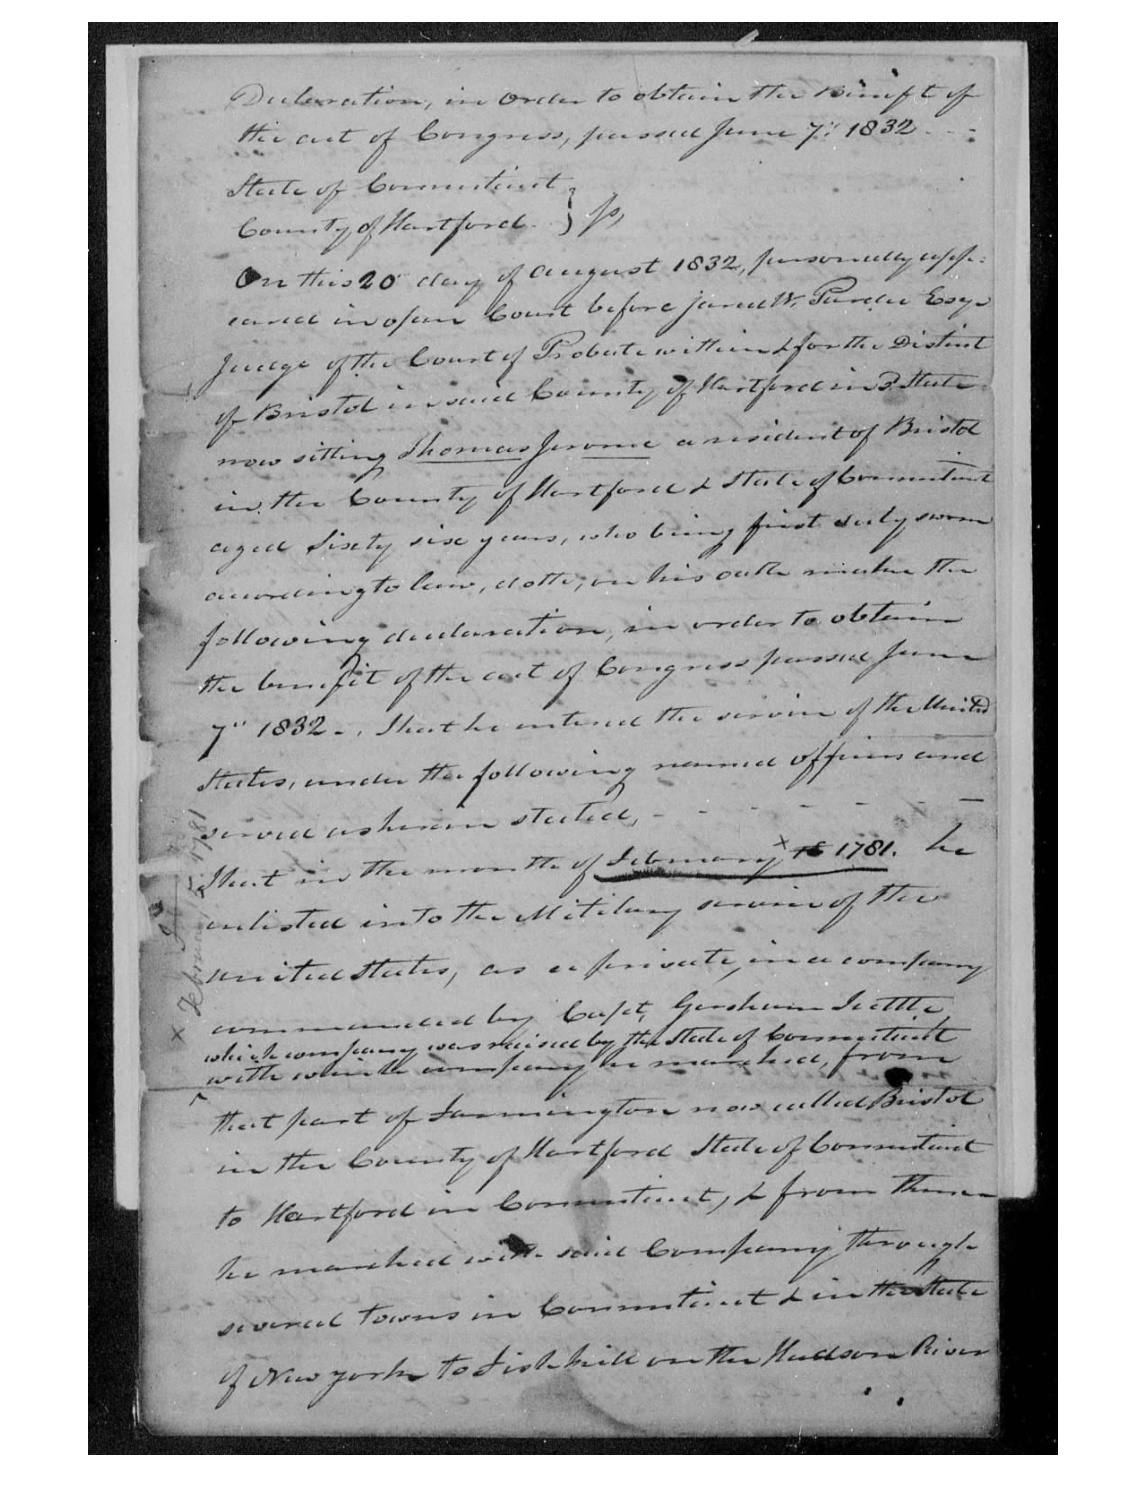 Declaration, in order to obtain the Benifit of
the act of Congress, passed June 7" 1832
State of Connecticut
County of Hartford } Ss,
On this 20 day of August 1832, personally app-
eared in open Court before Jared W. Pardee Esq
Judge of the Court of Probate within & for the District
of Bristol in said County of Hartford in Sd State
now sitting Thomas Jerome a resident of Bristol
in the County of Hartford & State of Connecticut
aged Sixty six years, who being first duly sworn
according to law, doth, on his oath make the
following declaration, in order to obtain
the benefit of the act of Congress passed June
7" 1832 -. That he entered the service of the United
States, under the following named officers and
served as herein stated, - - - - - -
That in the month of February 1781. he
enlisted into the Military service of the
united States, as a private, in a company
commanded by Capt. Gershum
which company was raised by the State of Connecticut
with which company he marched, from
that part of Farmington now called Bristol
in the County of Hartford State of Connecticut
to Hartford in Connecticut, & from thence
he marched with said Company through
several towns in Connecticut & in the State
of New york to Fishkill on the Hudson River
x February 1781